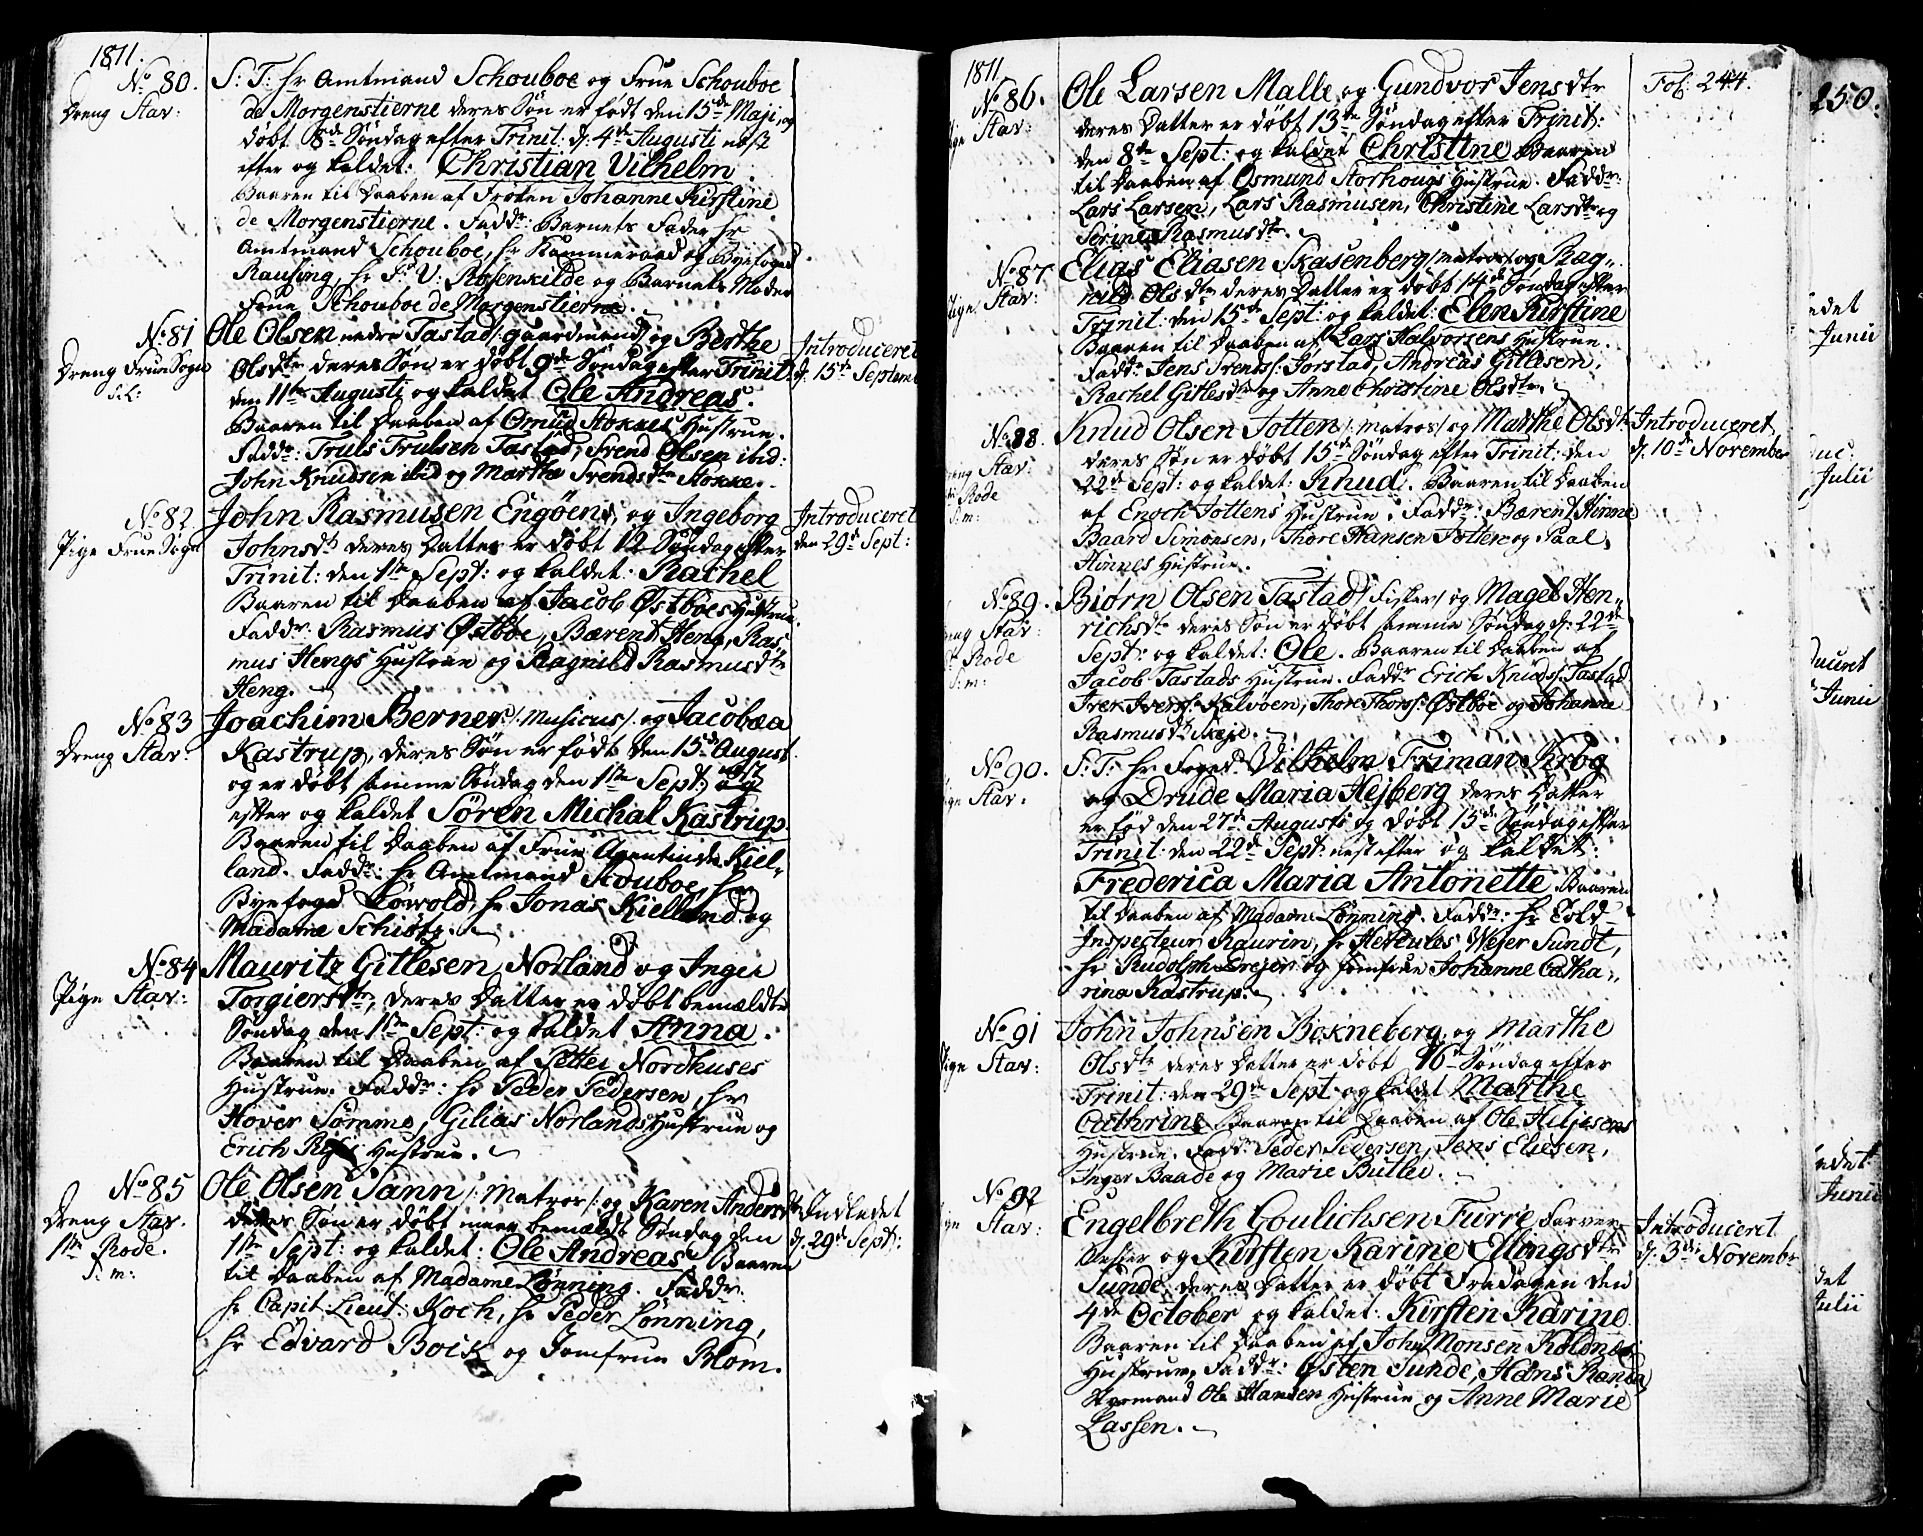 1811.
No 80.
Dreng Stav:
S: T: Hr Amtmand Schouboe og Frue Schouboe
de Morgenstierne deres Søn er født den 15de Maji, og
døbt 8de Søndag efter Trinit: d: 4de Augusti nest
efter og kaldet: Christian Vilhelm.
Baaren til Daaben af Frøken Johanne Kirstine
de Morgenstierne. Faddr: Barnets Fader Hr
Amtmand Schouboe, Hr Kammerraad og Byefoged
Rausing, Hr P: V: Rosenkilde og Barnets Moder
Frue Schouboe de Morgenstierne.
No 81
Dreng Frue Sogn
Ole Olsen nedre Tastad /: gaardmand og Berthe
Olsdtr deres Søn er døbt 9de Søndag efter Trinit:
den 11te Augusti og kaldet Ole Andreas.
Baaren til Daaben af Omund Stokkes Hustrue.
Faddr: Truls Trulsen Tastad, Svend Olsen ibid:
John Knudsen ibid og Marthe Svendsdtr Stokke.
Introduceret
d: 15de Septemb
No 82
Pige Frue Sogn
John Rasmusen Engøen, og Ingeborg
Johnsdtr deres Datter er døbt 12 Søndag efter
Trinit: den 1ste Sept: og kaldet: Rachel
Baaren til Daaben af Jacob Østbøes Hustrue.
Faddr: Rasmus Østbøe, Bærent Heng, Ras-
mus Hengs Hustrue og Ragnild Rasmusdtr
Heng.
Introduceret
den 29de Sept:
No 83
Dreng Stav:
Joachim Berner /: Musicus /: og Jacobæa
Kastrup, deres Søn er født den 15de August
og er døbt samme Søndag den 1ste Sept: nest
efter og kaldet Søren Michal Kastrup
Baaren til Daaben af Frue Agentinde Kiel-
land. Faddr: Hr Amtmand Schouboe, Hr
Byefoged Løwold, Hr Jonas Kielland og
Madame Schiøtz.
No 84
Pige Stav:
Mauritz Gitlesen Norland og Inger
Torgiersdtr, deres Datter er døbt bemældte
Søndag den 1ste Sept: og kaldet Anna.
Baaren til Daaben af Petter Nordhuses
Hustrue. Faddr: Hr Peder Pedersen, Hr
Hover Sømme, Gilias Norlands Hustrue og
Erich Hustrue.
No 85
Dreng Stav.
1ste Rode.
S: m:
Ole Olsen Sann /: Matros /: og Karen Andersdtr
deres Søn er døbt meer bemældt Søndag den
1ste Sept: og kaldet: Ole Andreas. Baaren
til Daaben af Madame Lønning. Faddr:
Hr Capit Lieut: Koch, Hr Peder Lønning,
Hr Edvard Boisk og Jomfrue Blom.
Indledet
d: 29de Sept:
1811
No 86.
Pige Stav:
Ole Larsen Malle og Gundvor Jensdtr
deres Datter er døbt 13de Søndag efter Trinit:
den 8de Sept: og kaldet Christine Baaren
til Daaben af Osmund Storhougs Hustrue. Faddr:
Lars Larsen, Lars Rasmusen, Christine Larsdtr og
Serine Rasmusdtr.
Fol: 244.
No 87
Pige Stav:
Elias Eliasen Skasenberg /: matros og Rag-
nild Olsdtr deres Datter er døbt 14de Søndag efter
Trinit: den 15de Sept: og kaldet: Elen Kirstine
Baaren til Daaben af Lars Halvorsens Hustrue.
Faddr: Jens Svends: Jorstad, Andreas Gitlesen,
Rachel Gitlesdtr og Anne Christine Olsdtr.
No 88.
Stav:
Rode
S: m:
Knud Olsen Totten /: matros / og Marthe Olsdtr
deres Søn er døbt 15de Søndag efter Trinit: den
22de Sept: og kaldet: Knud. Baaren til Daaben
af Enoch Tottens Hustrue. Faddr: Bærent Hinne
Baard Simonsen, Thore Hansen Totten og Paal
Hinnes Hustrue.
Introduceret,
d: 10de November
No 89.
Stav:
Rode
S: m:
Biørn Olsen Tastad / Fisker / og Magel Hen-
richsdtr deres Søn er døbt samme Søndag d: 22de
Sept: og kaldet: Ole. Baaren til Daaben af
Jacob Tastads Hustrue. Faddr Erich Knuds: Tastad
Iver Ivers: Kalvøen, Thore Thors: Østbøe og Johanne
Rasmusdtr
No 90.
Stav.
S: T: Hr Foged Vilhelm Friman Krog
og Drude Maria Hejberg deres Datter
er fød den 27de Augusti og døbt 15de Søndag efter
Trinit: den 22de Sept: nest efter og kaldet:
Frederica Maria Antonette Baaren
til Daaben af Madame Lønning. Faddr: Hr Told-
Inspecteur Kaurin, Hr Hercules Wejer Sundt,
Hr Rudolph Drejer og Jomfrue Johanne Catha-
rina Kastrup.
No 91
Pige Stav:
John Johnsen Bokneberg og Marthe
Olsdtr deres Datter er døbt 16de Søndag efter
Trinit: den 29de Sept og kaldet Marthe
Cathrine Baaren til Daaben af Ole Heljesens
Hustrue. Faddr Peder Pedersen, Jens Eliesen,
Inger Baade og Marie Butler.
No 92
Stav:
Engelbreth Goulichsen Furre, Farver
Mester og Kirsten Karine Ellingsdtr
Sunde, deres Datter er døbt Fredagen den
4de October og kaldet: Kirsten Karine
Baaren til Daaben af John Monsen
Hustrue, Faddr: Østen Sunde, Hans
Styrmand Ole Hansen Hustrue og Anne Marie
Lassen.
Introduceret
d: 3die Novembr
250.
Junii
Julii
Junii
Junii
Julii